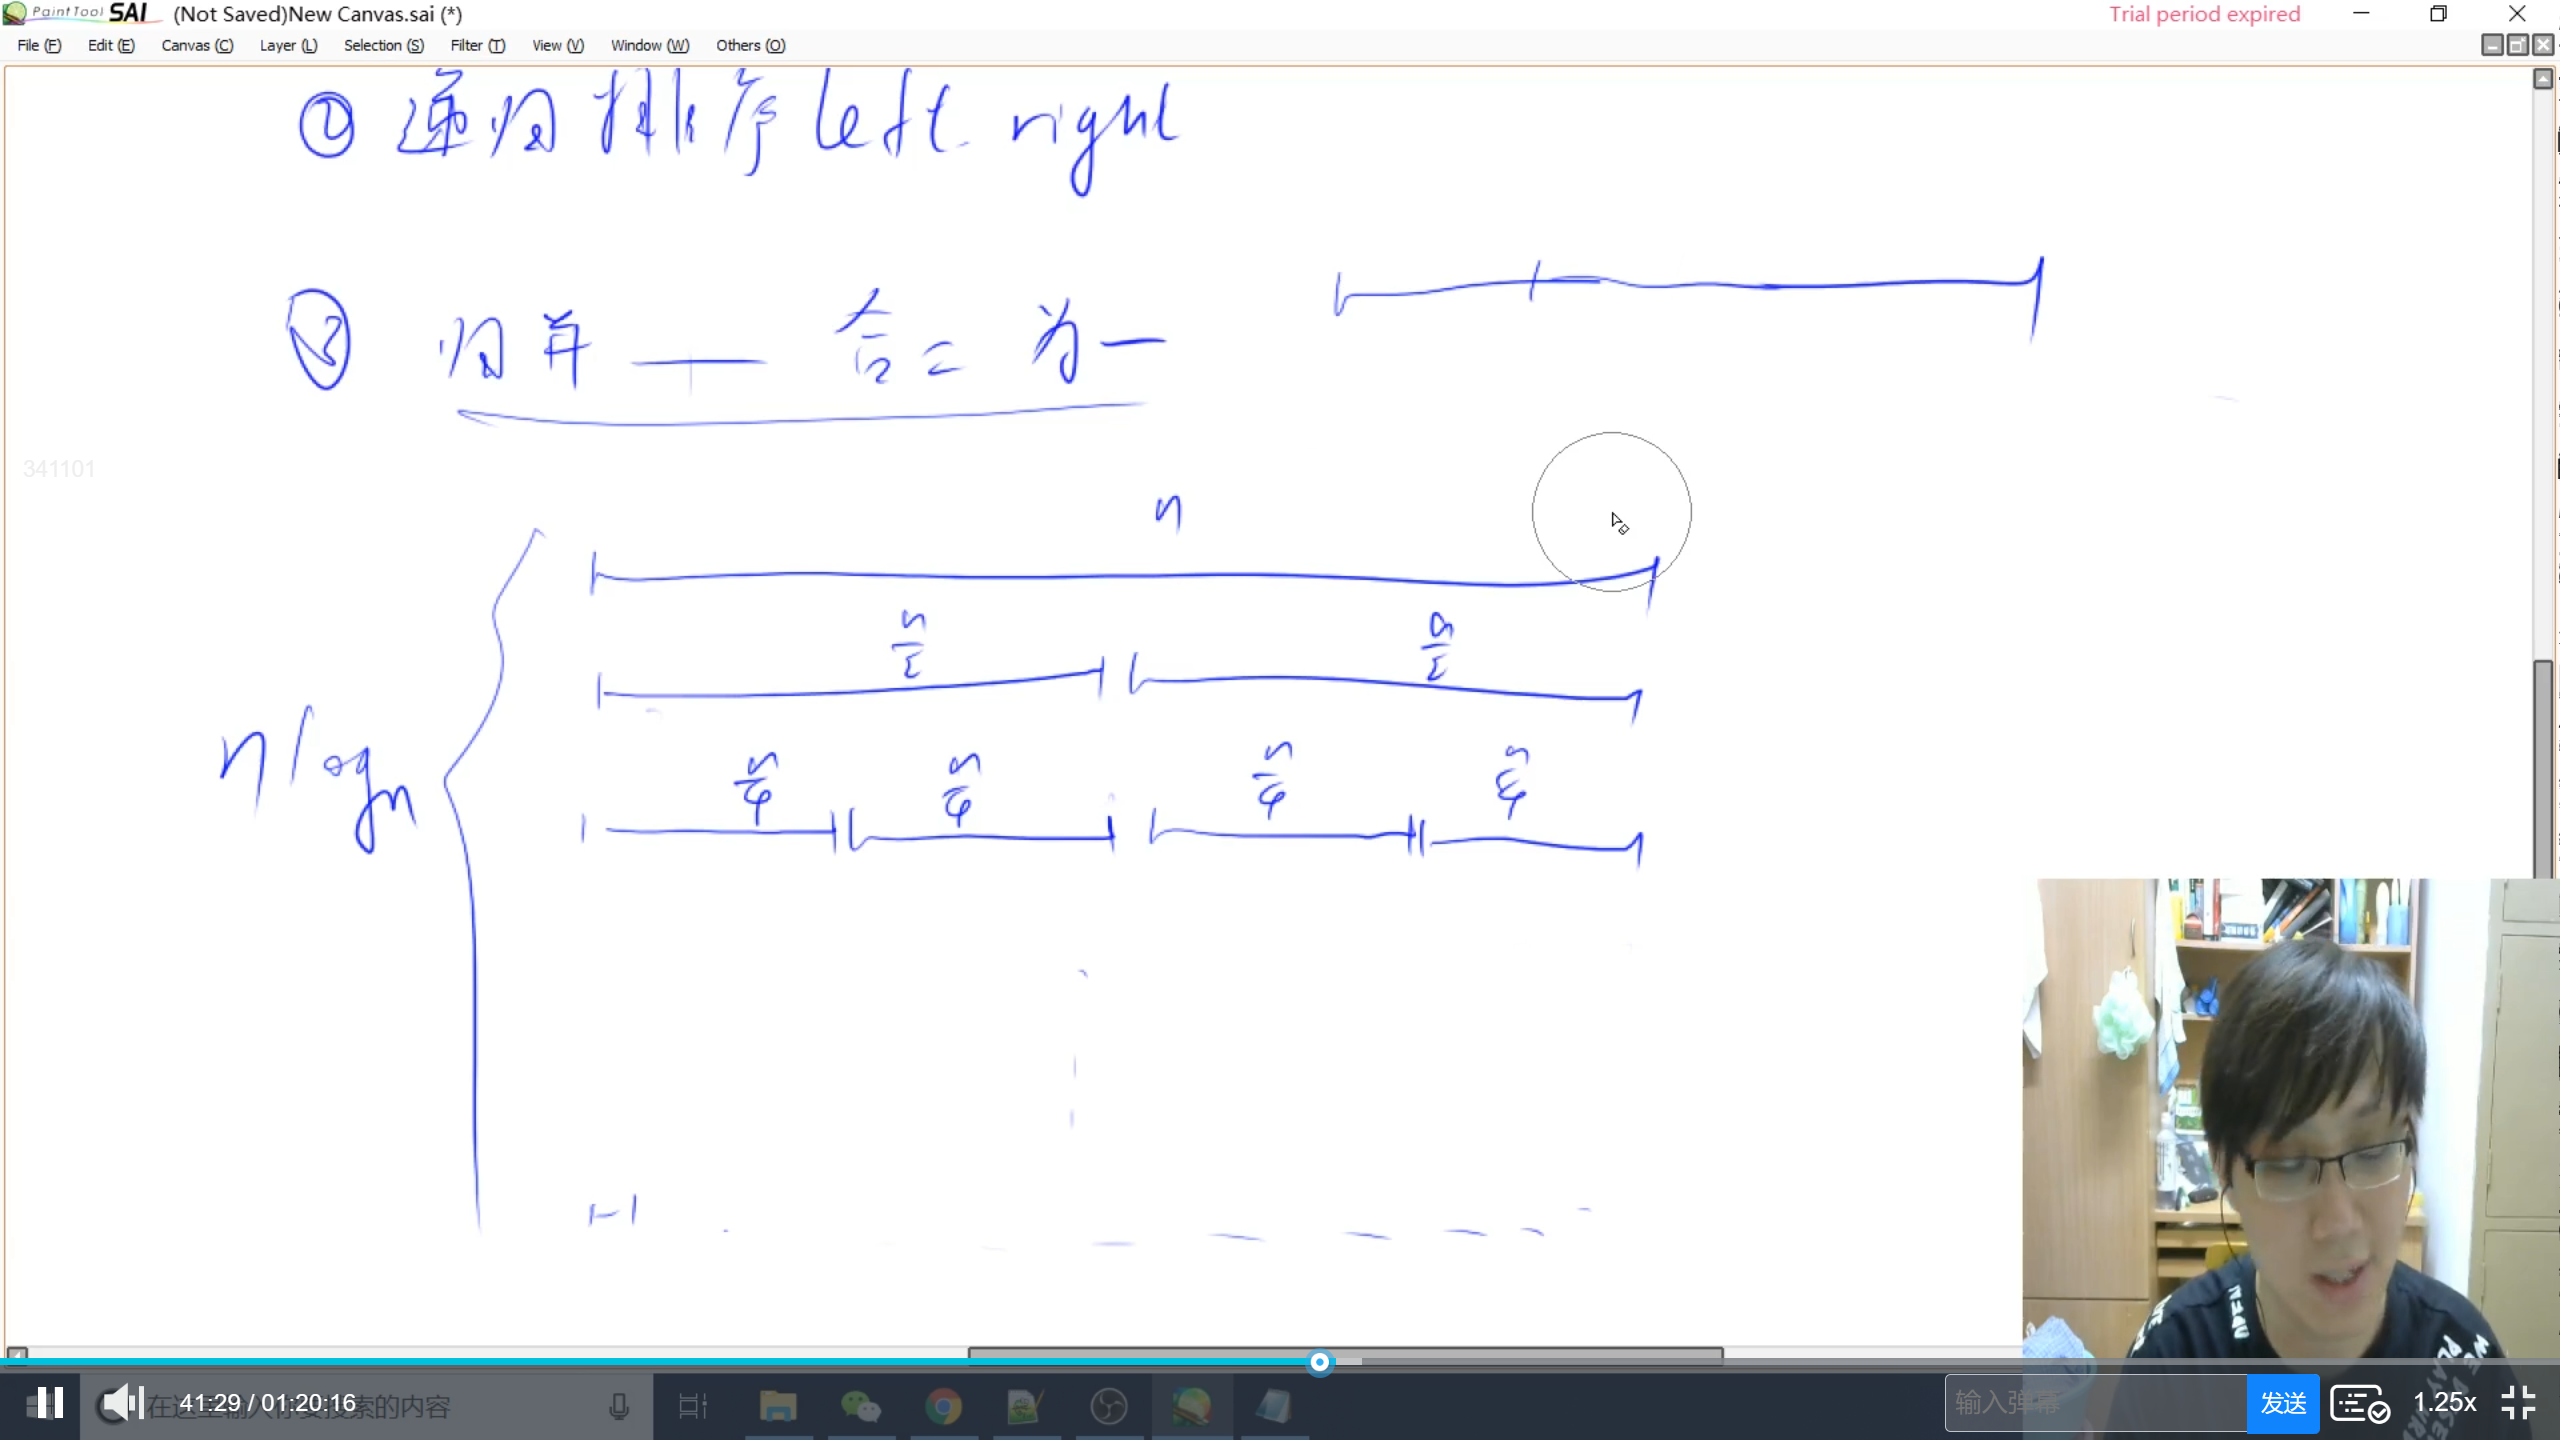 PaintTool SAI (Not Saved)New Canvas.sai (*) Trial period expired
File (F) Edit (E) Canvas (C) Layer (L) Selection (S) Filter (T) View (V) Window (W) Others (O)
② 递归排序 left right
③ 归并 — 合二为一
341101
n
n/2 n/2
n log n
n/4 n/4 n/4 n/4
41:29 / 01:20:16
在这里输入你要搜索的内容
输入弹幕
发送
1.25x